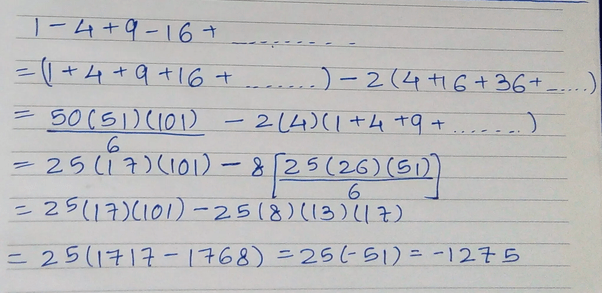 1 - 4 + 9 - 16 + ..........
= (1 + 4 + 9 + 16 + ........) - 2(4 + 16 + 36 + .....)
= 50(51)(101)/6 - 2(4)(1 + 4 + 9 + ........)
= 25(17)(101) - 8[25(26)(51)/6]
= 25(17)(101) - 25(8)(13)(17)
= 25(1717 - 1768) = 25(-51) = -1275